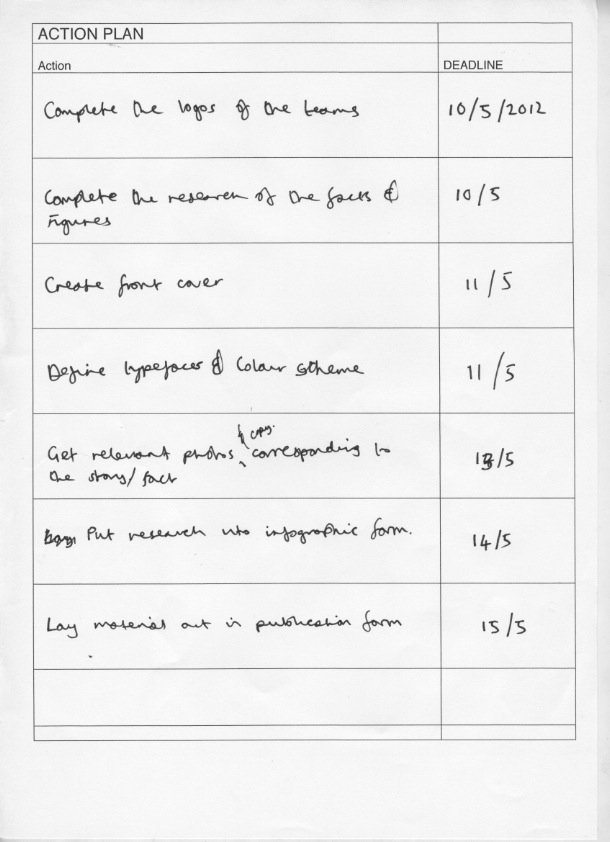 ACTION PLAN
Action DEADLINE
Complete the logos of the teams 10/5/2012
Complete the research of the facts & 10/5
Figures
Create front cover 11/5
Define typefaces & Colour scheme 11/5
& copy.
Get relevant photos, corresponding to 13/5
the story/fact
Put research into infographic form. 14/5
Lay material out in publication form 15/5